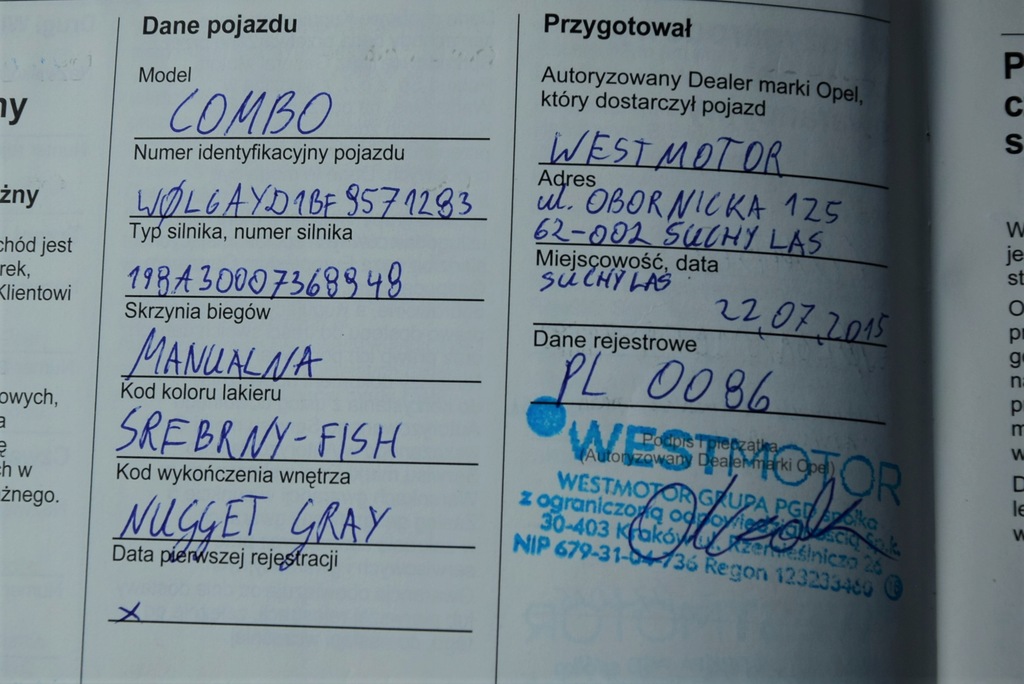 ny
żny
chód jest
rek,
Klientowi
owych,
a
ę
ch w
żnego.
Dane pojazdu
Model
COMBO
Numer identyfikacyjny pojazdu
WØLGAYD1BF9571293
Typ silnika, numer silnika
198A30007368948
Skrzynia biegów
MANUALNA
Kod koloru lakieru
SREBRNY-FISH
Kod wykończenia wnętrza
NUGGET GRAY
Data pierwszej rejestracji
x
Przygotował
Autoryzowany Dealer marki Opel,
który dostarczył pojazd
WESTMOTOR
Adres
ul. OBORNICKA 125
62-002 SUCHY LAS
Miejscowość, data
SUCHY LAS
22,07,2015
Dane rejestrowe
PL 0086
Podpis i pieczątka
(Autoryzowany Dealer marki Opel)
WESTMOTOR
WESTMOTOR GRUPA PGD Spółka
z ograniczoną odpowiedzialnością Sp.k.
30-403 Kraków, ul. Rzemieślnicza 26
NIP 679-31-04-736 Regon 123233460
P
c
s
W
je
st
O
pr
g
n
p
m
w
D
le
w